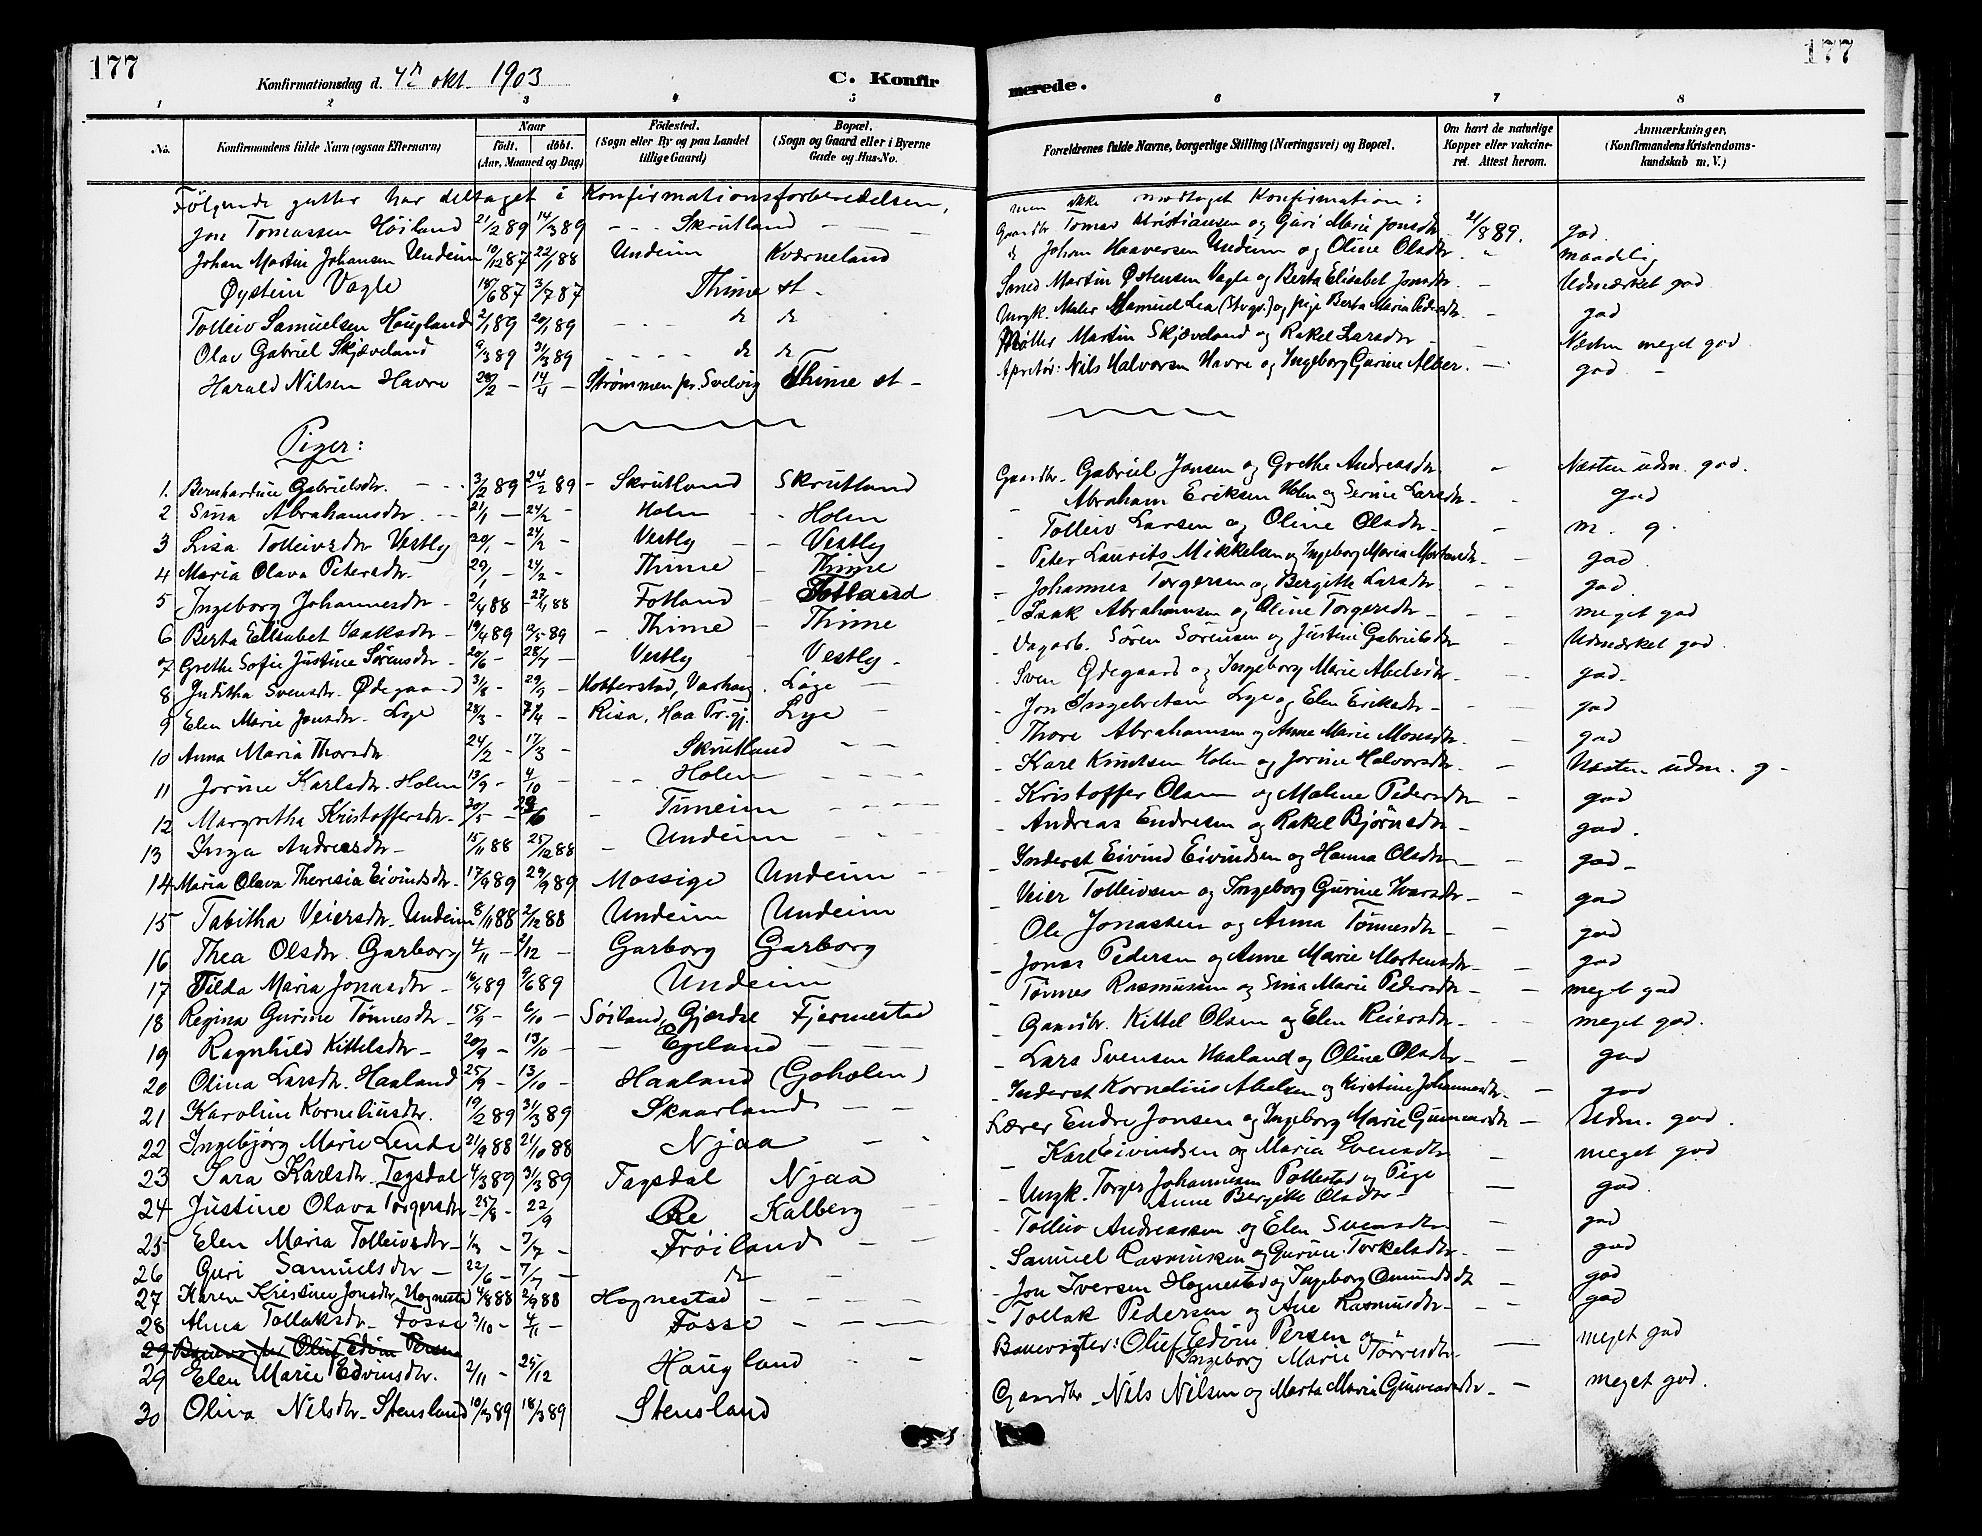 177
177
Konfirmationsdag d. 4de okt. 1903
C. Konfir
merede.
1 2 3 4 5 6 7 8
No.
Konfirmandens fulde Navn (ogsaa Efternavn)
Naar
Födt. döbt.
(Aar, Maaned og Dag)
Födested.
(Sogn eller By og paa Landet
tillige Gaard)
Bopæl.
(Sogn og Gaard eller i Byerne
Gade og Hus-No.
Forældrenes fulde Navne, borgerlige Stilling (Næringsvei) og Bopæl.
Om havt de naturlige
Kopper eller vakcine-
ret. Attest herom.
Anmærkninger.
(Konfirmandens Kristendoms-
kundskab m. V.)
Følgende gutter har deltaget i Konfirmationsforberedelsen, men ikke modtaget Konfirmation:
Jon Tomassen Høiland 21/2 89 14/3 89 - - - Skrutland - - - Gaardbr Tomas Kristiansen og Guri Marie Jonsdtr. 21/8 89. god
Johan Martin Johansen Undeim 10/12 87 22/1 88 Undeim Kværneland Johan Haaversen Undeim og Oline Olsdtr. " maadelig
Øystein Vagle 18/6 87 3/7 87 Thime st. Smed Martin Østensen Vagle og Berta Elisabet Jonsdtr. - Udmærket god
Tolleiv Samuelsen Haugland 2/1 89 20/1 89 - - - do do Ungk. Maler Samuel Lea (Stvgr.) og pige Berta Maria Pedersdtr. - god
Olav Gabriel Skjæveland 9/3 89 31/3 89 - - - - do do Møller Martin Skjæveland og Rakel Larsdtr - Næsten meget god
Harald Nilsen Havre 28/2 - 14/4 - Strømmen pr. Svelvig Thime st - Apretør: Nils Halvorsen Havre og Ingeborg Gurine Alver. - god -
Piger:
1. Bernhardine Gabrielsdtr. - - 3/2 89 24/2 89 - Skrutland Skrutland Gaardbr. Gabriel Jonsen og Grethe Andreasdtr. - Næsten udm. god.
2 Sina Abrahamsdtr. - - 21/1 - 24/2 - Holen - - Holen - Abraham Eriksen Holen og Serine Larsdtr - - god
3 Lisa Tolleivsdtr Vestly 20/1 - 24/2 - Vestly - - Vestly - Tolleiv Larsen og Oline Olsdtr - - m. g.
4 Maria Olava Petersdtr. 29/1 - 24/2 - Thime - Thime - Peter Laurits Mikkelsen og Ingeborg Maria Mortensdtr - god
5 Ingeborg Johannesdtr - 2/4 88 - 27/4 88 Fotland - Fotland - Johannes Torgersen og Bergithe Larsdtr. - - god.
6 Berta Elisabet Isaksdtr - 19/4 89 12/5 89 - Thime - Thime - Isak Abrahamsen og Oline Torgersdtr - - meget god
7 Grethe Sofie Justine Sørensdtr - 20/6 - 28/7 - Vestly - Vestly - - Dagarb. Sören Sörensen og Justine Gabrielsdtr - - Udmærket god.
8 Juditha Svensdtr. Ødegaard 31/8 - 29/9 - Hobberstad, Varhaug. Löge - - Sven Ødegaard og Ingeborg Marie Abelsdtr. - - god.
9 Elen Marie Jonsdtr - Lye 28/3 - 7/4 - Risa, Haa Pr.gj. Lye - - Jon Ingebretsen Lye og Elen Eriksdtr - - - god
10 Anna Maria Thorsdtr 24/2 - 17/3 - Skrutland - - - Thore Abrahamsen og Anne Marie Monsdtr. - - god
11 Jorine Karlsdtr. Holen 13/9 - 4/10 - - - Holen - - - - - Karl Knutsen Holen og Jorine Halvorsdtr - - Næsten udm. g -
12 Margretha Kristoffersdtr. 30/5 - 29/6 - Tuneim - - - - - Kristoffer Olsen og Malene Pedersdtr - god
13 Inga Andreasdtr - 15/11 88 25/12 88 - Undeim - - - Andreas Endresen og Rakel Bjørnsdtr - god.
14 Maria Olava Theresia Eivindsdtr. 17/9 89 29/9 89 Mossige Undeim - - - Inderst Eivind Eivindsen og Hanna Olsdtr - - god -
15 Tabitha Veiersdtr. Undeim 8/11 88 2/12 88 Undeim Undeim - Veier Tolleivsen og Ingeborg Gurine Ivarsdtr - - god
16 Thea Olsdtr. Garborg 4/11 - 2/12 - Garborg Garborg - Ole Jonassen og Anna Tönnesdtr - - god
17 Tilda Maria Jonasdtr - 16/4 89 9/6 89 Undeim - Jonas Pedersen og Anne Marie Mortensdtr - - god
18 Regina Gurine Tönnesdtr - 15/9 - 6/10 - Söiland, Gjesdal Fjermestad - Tönnes Rasmussen og Sina Marie Pedersdtr - - meget god
19 Ragnhild Kittelsdtr - 20/9 - 13/10 - - Egeland - - - - Gaardbr. Kittel Olsen og Elen Reiersdtr - - - meget god.
20 Olina Larsdtr. Haaland 25/9 - 13/10 - Haaland (Goholen) - Lars Svensen Haaland og Oline Olsdtr - - god
21 Karoline Korneliusdtr. 19/2 89 31/3 89 Skaarland - - - Inderst Kornelius Abelsen og Kirstine Johannesdtr. - god
22 Ingebjørg Marie Lende 21/9 88 21/10 88 Njaa - - Lærer Endre Jonsen og Ingeborg Marie Gunnarsdtr - Udm. god.
23 Sara Karlsdtr. Tagsdal 4/3 89 31/3 89 Tagsdal Njaa - Karl Eivindsen og Maria Svensdtr - meget god
24 Justine Olava Torgersdtr - 25/8 - 22/9 Re Kalberg - - - Ungk. Torger Johannesen Pollestad og Pige
Anne Bergitte Olsdtr - - god.
25 Elen Maria Tolleivsdtr - - 7/7 - Fröiland - - - Tolleiv Andreassen og Elen Svensdtr - god
26 Guri Samuelsdtr - 22/6 - 7/7 - do - - - Samuel Rasmussen og Gurine Torkelsdtr. - - god
27 Karen Kristine Jonsdtr. Hognestad 4/8 88 2/9 88 Hognestad - - - - - Jon Iversen Hognestad og Ingeborg Omundsdtr - god
28 Alma Tollaksdtr - Fosse 3/10 - 4/11 - Fosse - - - - Tollak Pedersen og Ane Rasmusdtr - - - god
29 Banevogter Oluf Edvin Persen
29 Elen Marie Edvinsdtr. 2/11 - 25/12 Haugland - - Banevogter: Oluf Edvin Persen og
Ingeborg Marie Törresdtr - - meget god
30 Oliva Nilsdtr - Stensland 10/2 89 18/3 89 Stensland Gaardbr - Nils Nilsen og Marta Maria Gunnarsdtr - - meget god.